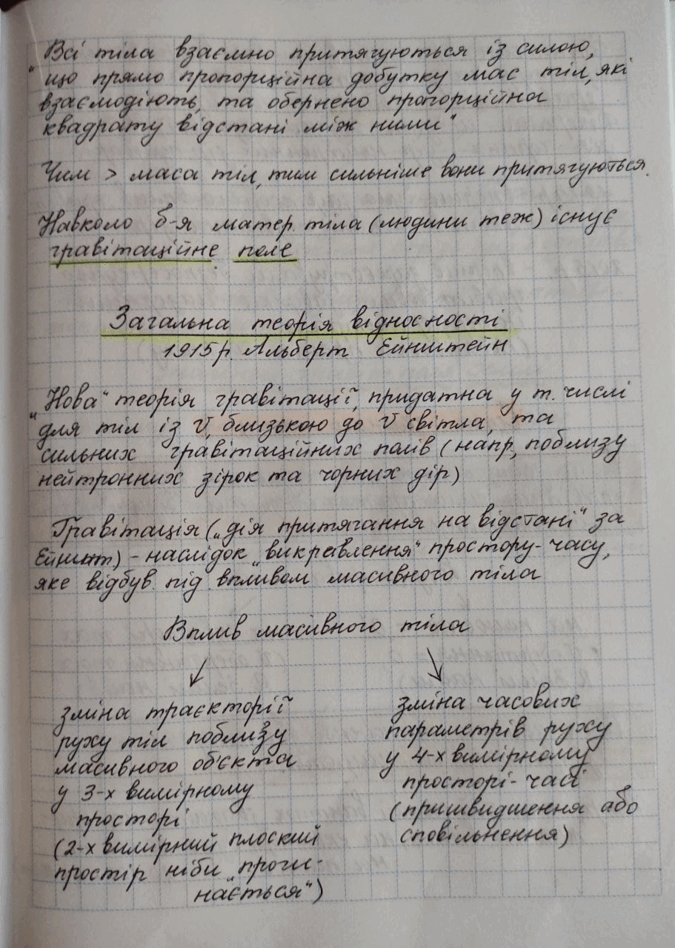 "Всі тіла взаємно притягуються із силою,
що прямо пропорційна добутку мас тіл, які
взаємодіють, та обернено пропорційна
квадрату відстані між ними"
Чим > маса тіл, тим сильніше вони притягуються.
Навколо б-я матер. тіла (людини теж) існує
гравітаційне поле
Загальна теорія відносності
1915р. Альберт Ейнштейн
"Нова" теорія гравітації, придатна у т. числі
для тіл із v, близькою до v світла, та
сильних гравітаційних полів (напр, поблизу
нейтронних зірок та чорних дір)
Гравітація („дія притягання на відстані" за
Ейншт) - наслідок „викривлення" простору-часу,
яке відбув. під впливом масивного тіла
Вплив масивного тіла
зміна траєкторії
руху тіл поблизу
масивного об'єкта
у 3-х вимірному
просторі
(2-х вимірний плоский
простір ніби „проги-
нається")
зміна часових
параметрів руху
у 4-х вимірному
просторі-часі
(пришвидшення або
сповільнення)